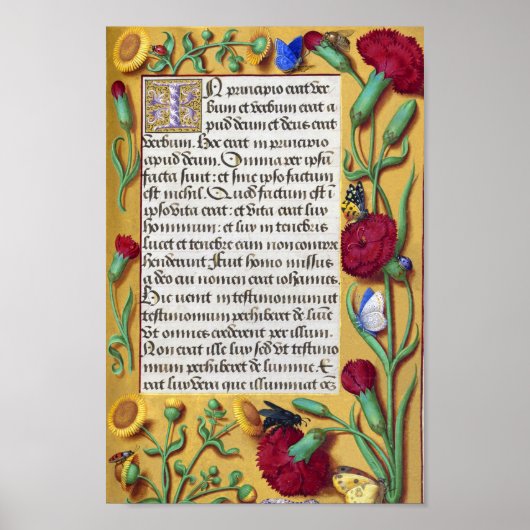 IN principio erat ver
bum et verbum erat a
pud deum et deus erat
verbum. Hoc erat in principio
apud deum. Omnia per ipsū
facta sunt: et sine ipso factum
est nichil. Quod factum est ī
ipso vita erat: et vita erat lux
hominum: et lux in tenebris
lucet et tenebre eam non compre
henderunt Fuit homo missus
a deo cui nomen erat iohannes.
Hic venit in testimonium ut
testimonium perhiberet de
Ut omnes crederent per illum.
Non erat ille lux sed ut testimo
nium perhiberet de lumine E
rat lux vera que illuminat